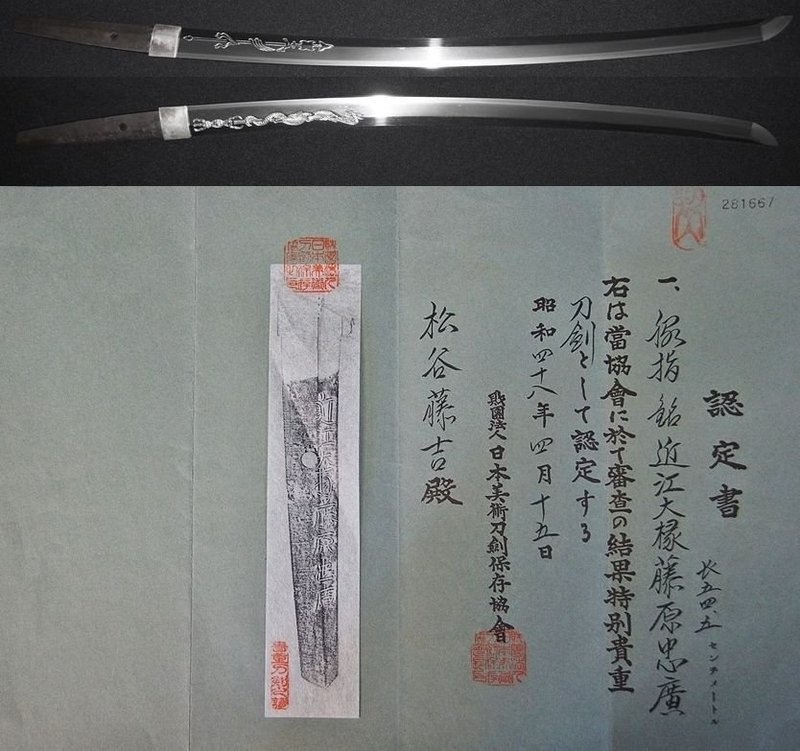 281667
認定書
一、脇指 銘 近江大掾藤原忠廣
長五四、五センチメートル
右は當協會に於て審査の結果特別貴重
刀劍として認定する
昭和四十八年四月十五日
財團法人日本美術刀劍保存協會
松谷藤吉殿
近江大掾藤原忠廣